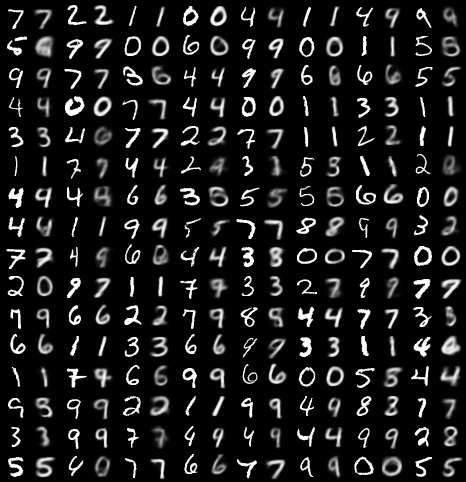 7 7 2 2 1 1 0 0 4 4 1 1 4 9 9 9
5 9 9 0 0 6 0 9 9 0 0 1 1 5 5
9 9 7 7 3 6 4 4 9 9 6 6 6 5 5
4 4 0 0 7 7 4 4 0 0 1 1 3 3 1 1
3 3 4 7 7 2 2 7 7 1 1 2 2 1 1
1 1 7 7 4 4 2 3 3 5 3 1 1 2
4 9 4 6 6 3 5 5 5 5 6 6 0 0
4 4 1 1 9 9 5 5 7 7 8 8 9 9 3 2
7 7 4 9 6 4 4 3 8 0 0 7 7 0 0
2 0 9 7 1 1 7 9 3 3 2 7 9 9 7 7
7 9 6 6 2 2 7 9 8 9 4 4 7 7 3 3
6 6 1 1 3 3 6 6 9 9 3 3 1 1 4
1 1 7 9 6 6 9 9 6 6 0 0 5 5 4 4
9 5 9 9 2 2 1 1 9 9 4 9 8 8 7 7
3 3 9 9 7 7 4 9 4 9 4 4 9 9 2 8
5 5 4 0 7 7 6 6 7 7 9 9 0 0 5 5